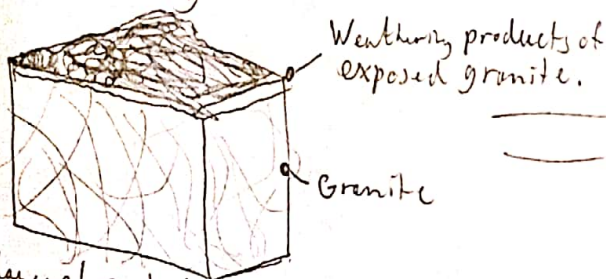 Weathering products of
exposed granite.
Granite